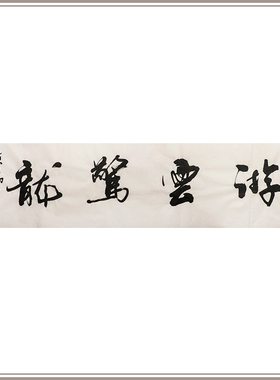 游雲驚龍